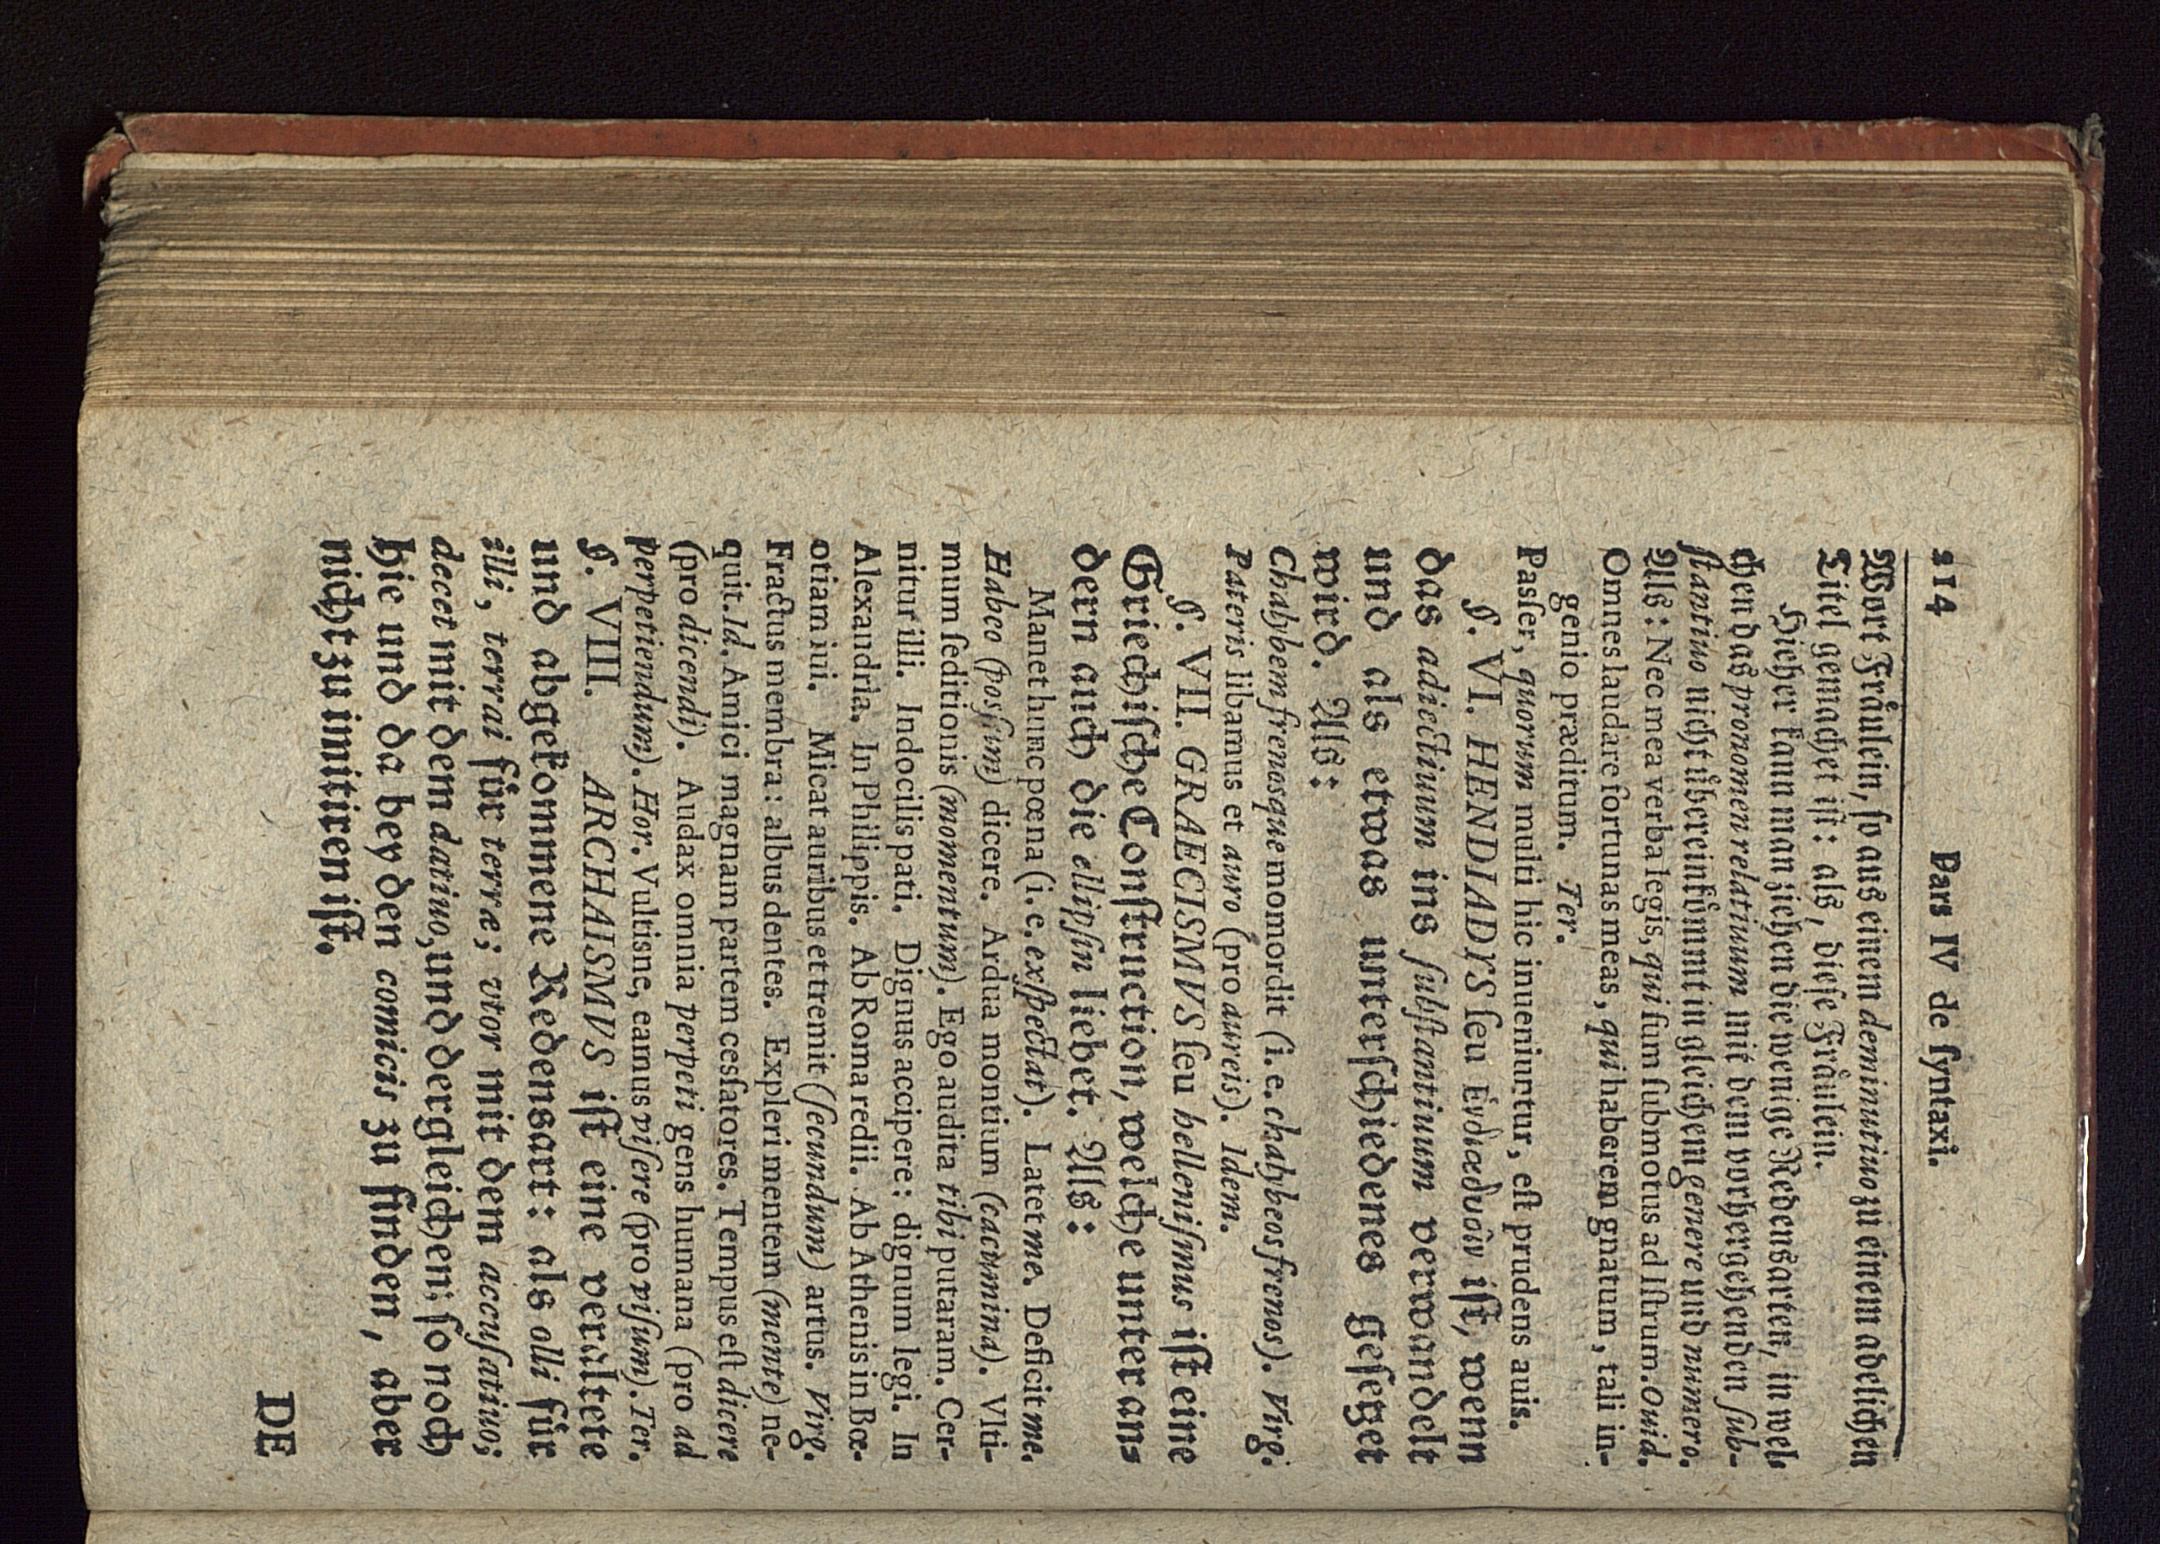 214 Pars IV de ſyntaxi.
Wort Fraͤulein, ſo aus einem deminutiuo zu einem adelichen
Titel gemachet iſt: als, dieſe Fraͤulein.
Hieher kann man ziehen die wenige Redensarten, in wel-
chen das pronomen relatiuum mit dem vorhergehenden ſub-
ſtantiuo nicht uͤbereinkoͤmmt in gleichem genere und numero.
Als: Nec mea verba legis, qui ſum ſubmotus ad Iſtrum. Ouid.
Omnes laudare fortunas meas, qui haberem gnatum, tali in-
genio præditum. Ter.
Paſſer, quorum multi hic inueniuntur, eſt prudens auis.
§. VI. HENDIADYS ſeu ἓνδιαδυοῖν iſt, wenn
das adiectiuum ins ſubſtantiuum verwandelt
und als etwas unterſchiedenes geſetzet
wird. Als:
Chalybem frenosque momordit (i. e. chalybeos frenos). Virg.
Pateris libamus et auro (pro aureis). Idem.
§. VII. GRAECISMVS ſeu helleniſmus iſt eine
Griechiſche Conſtruction, welche unter an-
dern auch die ellipſin liebet. Als:
Manet hunc pœna (i. e. exſpectat). Latet me. Deficit me.
Habeo (poſſim) dicere. Ardua montium (cacumina). Vlti-
mum ſeditionis (momentum). Ego audita tibi putaram. Cer-
nitur illi. Indocilis pati. Dignus accipere: dignum legi. In
Alexandria. In Philippis. Ab Roma redii. Ab Athenis in Bœ-
otiam iui. Micat auribus et tremit (ſecundum) artus. Virg.
Fractus membra: albus dentes. Expleri mentem (mente) ne-
quit. Id. Amici magnam partem cesſatores. Tempus eſt dicere
(pro dicendi). Audax omnia perpeti gens humana (pro ad
perpetiendum). Hor. Vultisne, eamus viſere (pro viſum). Ter.
§. VIII. ARCHAISMVS iſt eine veraltete
und abgekommene Redensart: als olli fuͤr
illi, terrai fuͤr terræ; vtor mit dem accuſatiuo;
decet mit dem datiuo, und dergleichen; ſo noch
hie und da bey den comicis zu finden, aber
nicht zu imitiren iſt.
DE